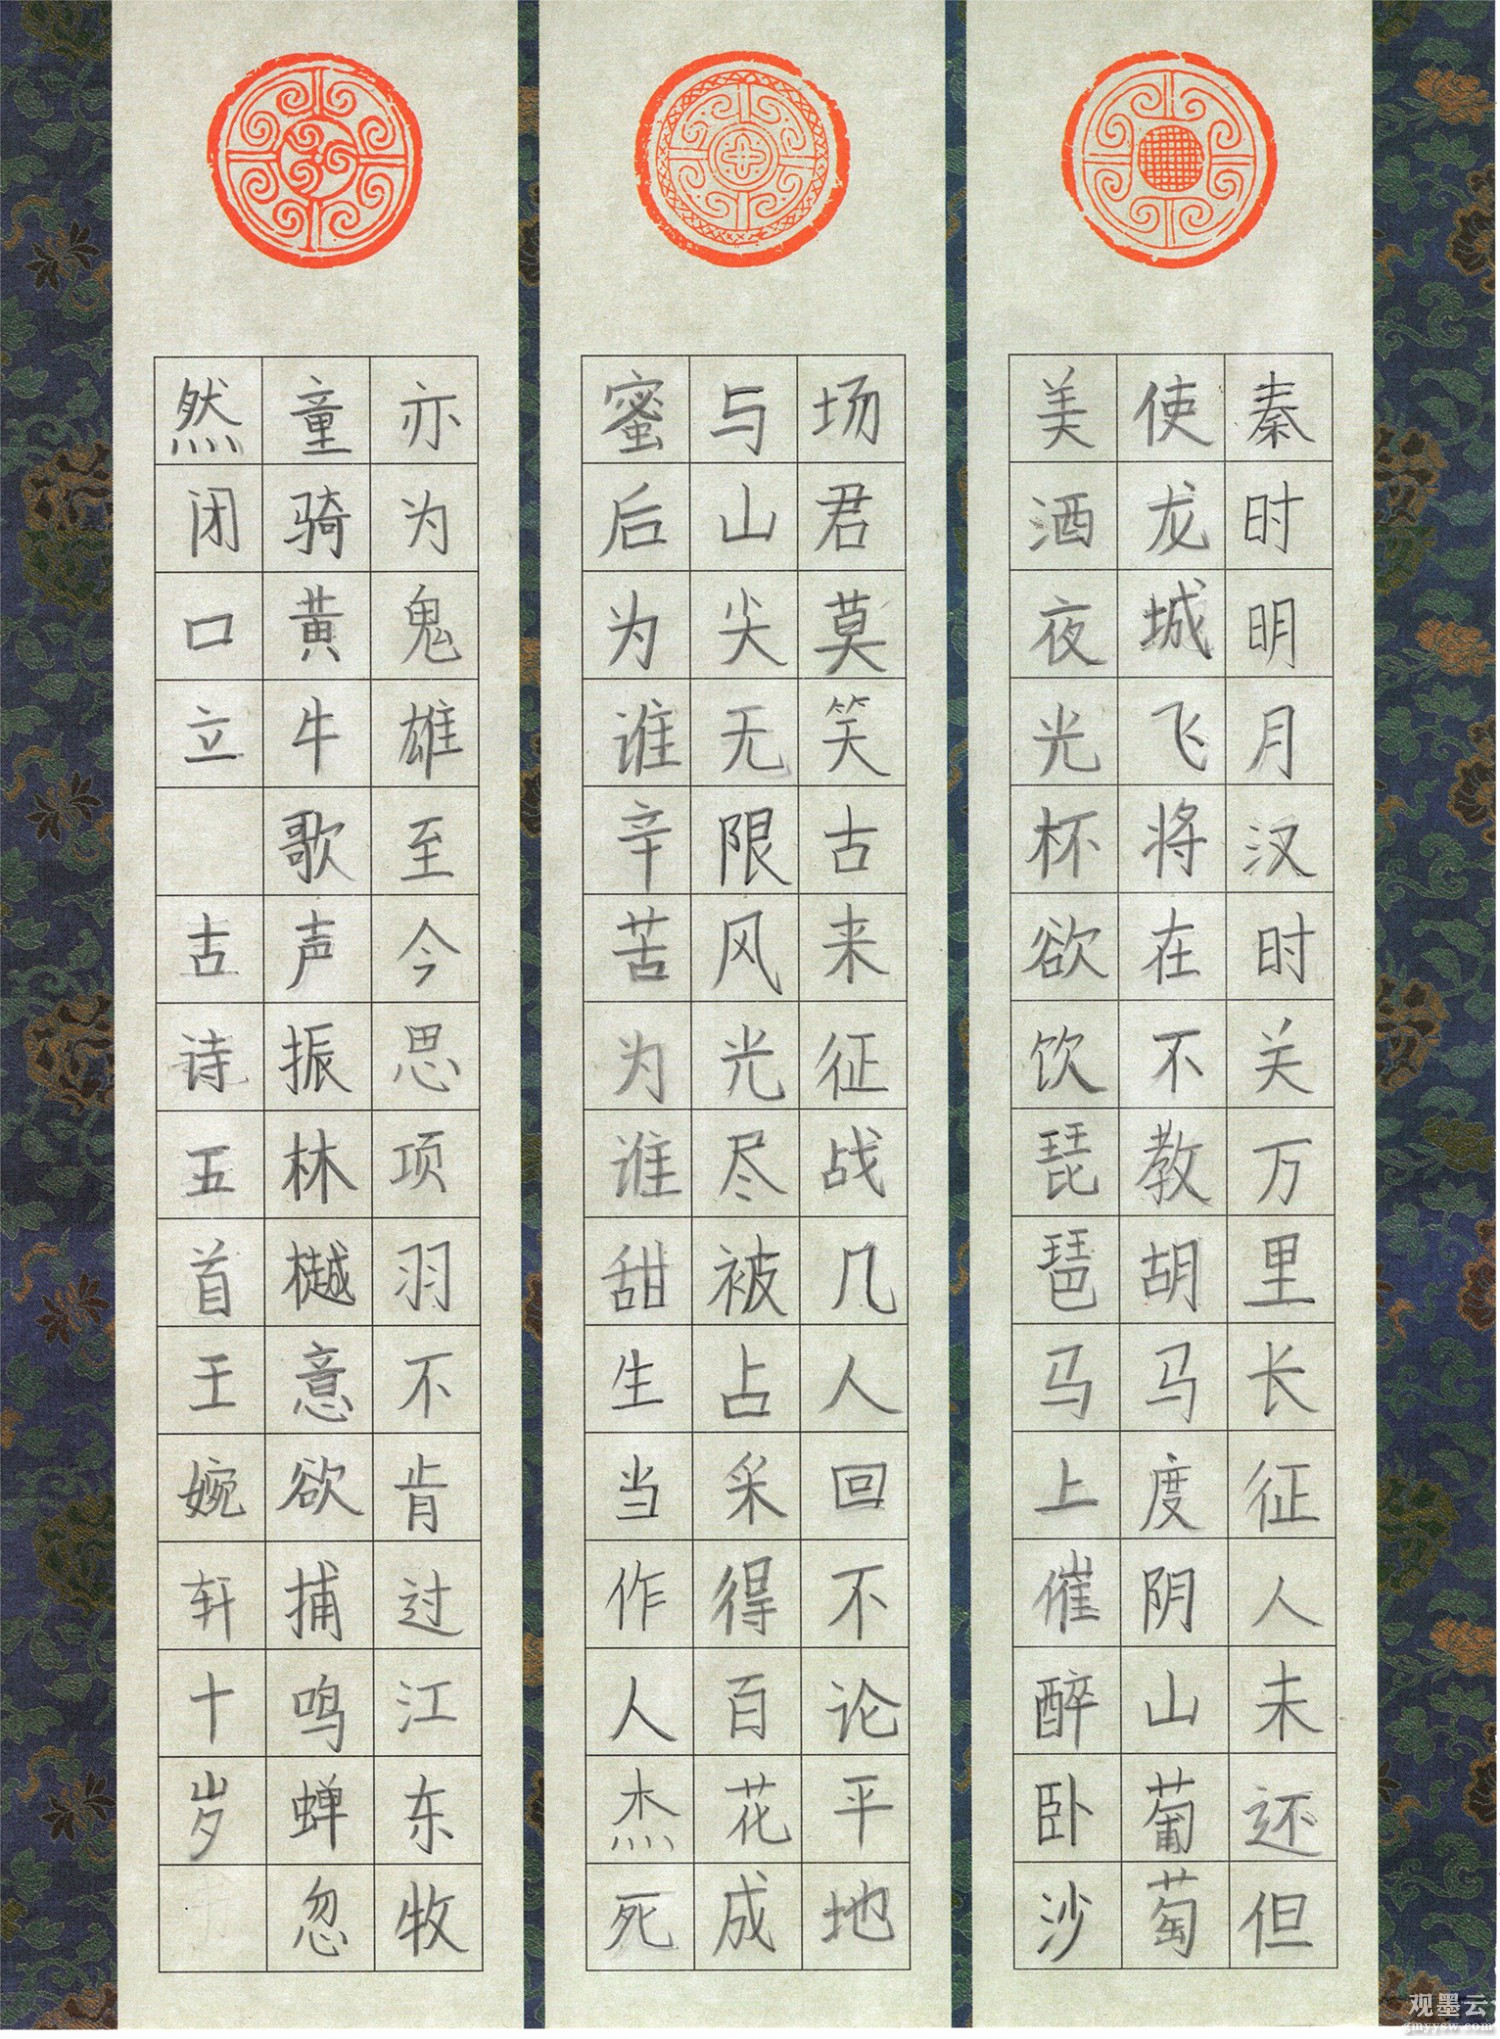 秦时明月汉时关万里长征人未还但
使龙城飞将在不教胡马度阴山葡萄
美酒夜光杯欲饮琵琶马上催醉卧沙
场君莫笑古来征战几人回不论平地
与山尖无限风光尽被占采得百花成
蜜后为谁辛苦为谁甜生当作人杰死
亦为鬼雄至今思项羽不肯过江东牧
童骑黄牛歌声振林樾意欲捕鸣蝉忽
然闭口立 古诗五首王婉轩十岁
观墨云
gmyysw.com